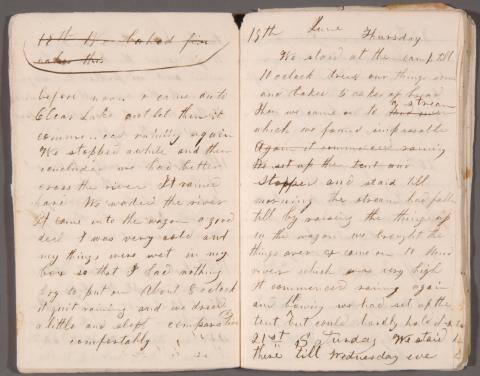 18th We baked five
cakes this
before noon & came on to
Clear Lake but then it
commenced raining again
We stopped awhile and then
concluded we had better
cross the river It rained
hard We waded the river
It came into the wagon a good
deal I was very cold and
my things were wet in my
box so that I had nothing
dry to put on About 8 oclock
it quit raining and we dried
a little and slept comparatively
comfortably
19th June Thursday
We staid at the camp till
11 oclock dried our things some
and baked 5 cakes of bread
Then we came on to a stream
which we found impassable
Again it commenced raining
We set up the tent and
Stopped and staid till
morning the stream had fallen
till by raising the things up
in the wagon we brought the
things over & came on to
river which was very high
It commenced raining again
and blowing we had set up the
tent but could hardly hold it
21st Sunday We staid
there till Wednesday eve